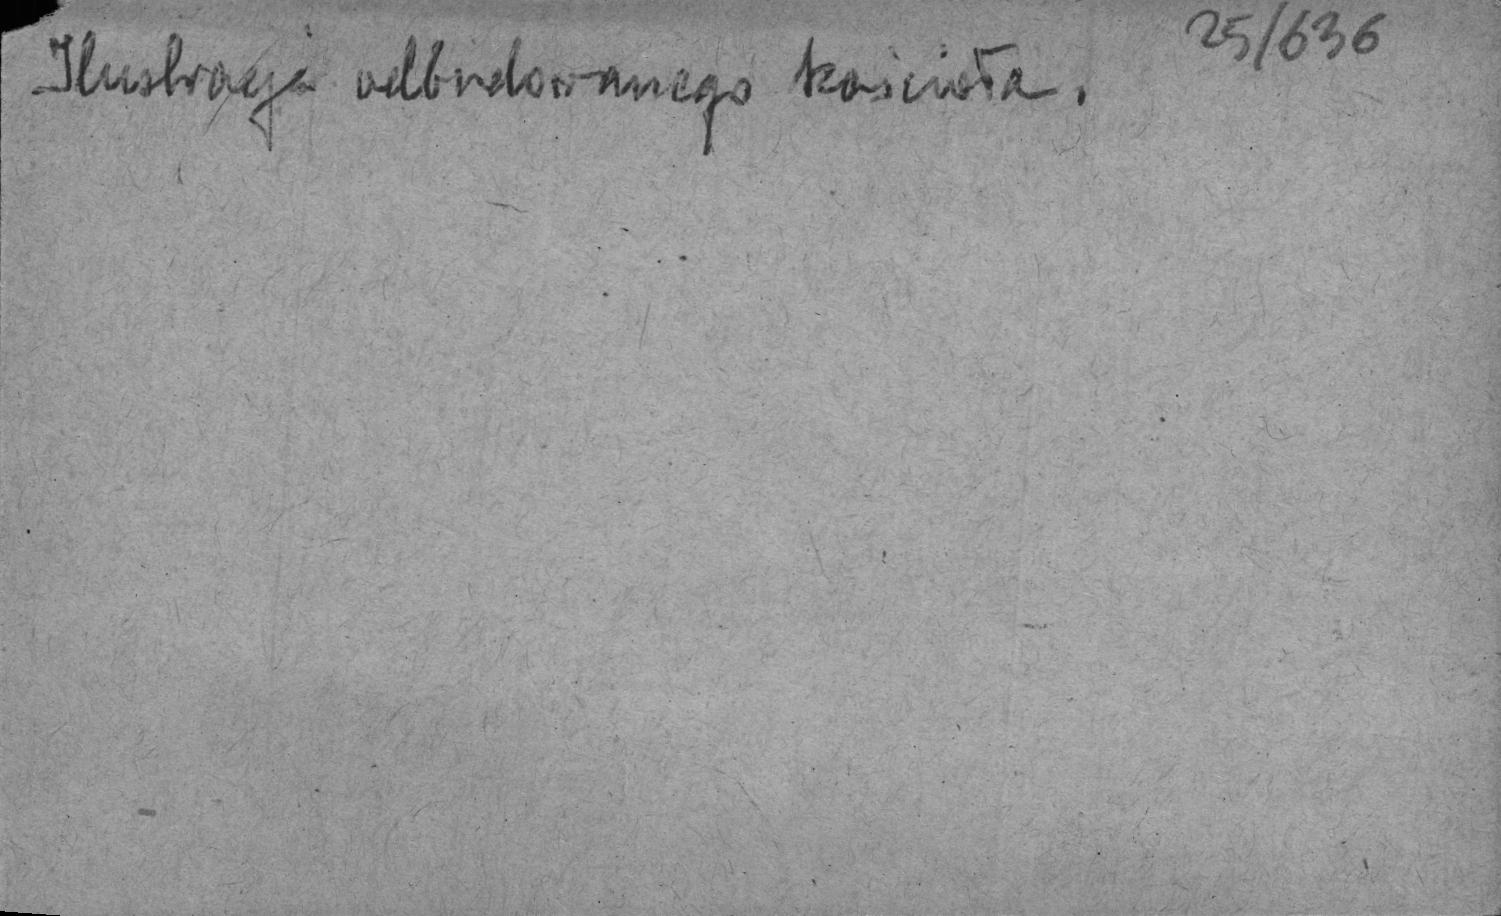 25/636
Ilustracja odbudowanego kościoła.